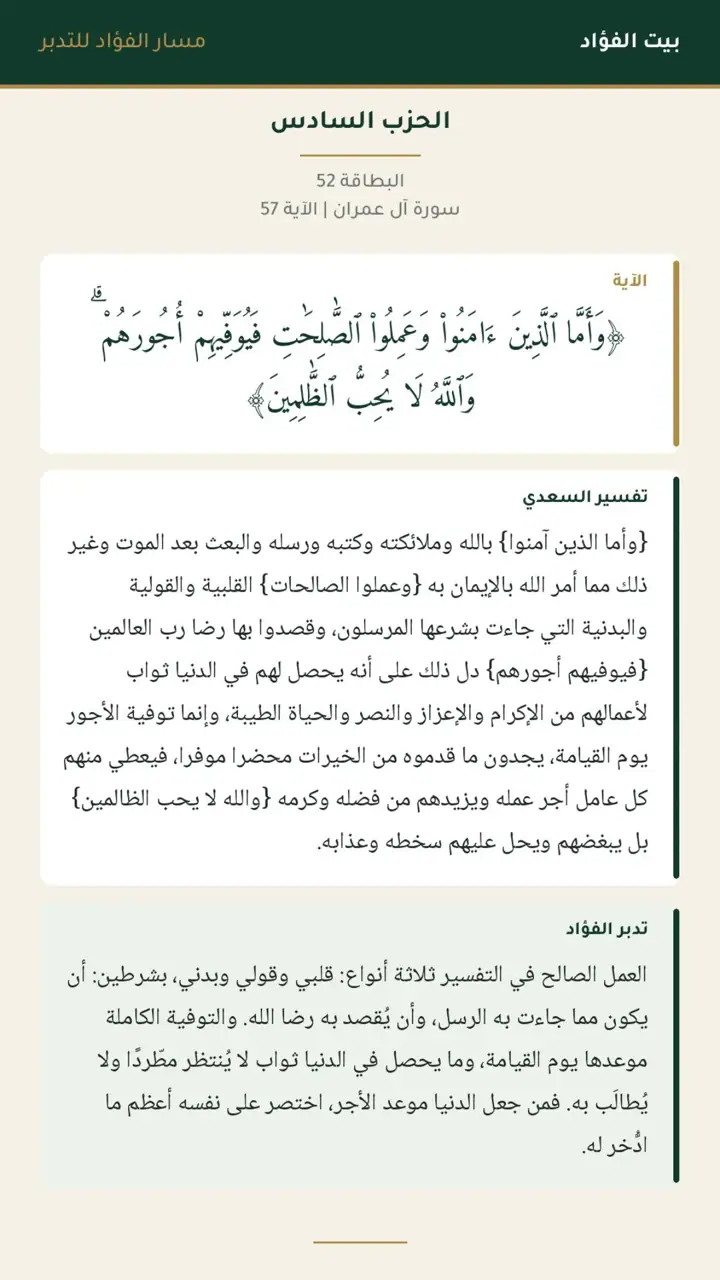 بيت الفؤاد
مسار الفؤاد للتدبر
الحزب السادس
البطاقة 52
سورة آل عمران | الآية 57
الآية
﴿وَأَمَّا ٱلَّذِينَ ءَامَنُوا۟ وَعَمِلُوا۟ ٱلصَّٰلِحَٰتِ فَيُوَفِّيهِمْ أُجُورَهُمْ ۗ
وَٱللَّهُ لَا يُحِبُّ ٱلظَّٰلِمِينَ﴾
تفسير السعدي
{وأما الذين آمنوا} بالله وملائكته وكتبه ورسله والبعث بعد الموت وغير
ذلك مما أمر الله بالإيمان به {وعملوا الصالحات} القلبية والقولية
والبدنية التي جاءت بشرعها المرسلون، وقصدوا بها رضا رب العالمين
{فيوفيهم أجورهم} دل ذلك على أنه يحصل لهم في الدنيا ثواب
لأعمالهم من الإكرام والإعزاز والنصر والحياة الطيبة، وإنما توفية الأجور
يوم القيامة، يجدون ما قدموه من الخيرات محضرا موفرا، فيعطي منهم
كل عامل أجر عمله ويزيدهم من فضله وكرمه {والله لا يحب الظالمين}
بل يبغضهم ويحل عليهم سخطه وعذابه.
تدبر الفؤاد
العمل الصالح في التفسير ثلاثة أنواع: قلبي وقولي وبدني، بشرطين: أن
يكون مما جاءت به الرسل، وأن يُقصد به رضا الله. والتوفية الكاملة
موعدها يوم القيامة، وما يحصل في الدنيا ثواب لا يُنتظر مطّردًا ولا
يُطالَب به. فمن جعل الدنيا موعد الأجر، اختصر على نفسه أعظم ما
ادُّخر له.